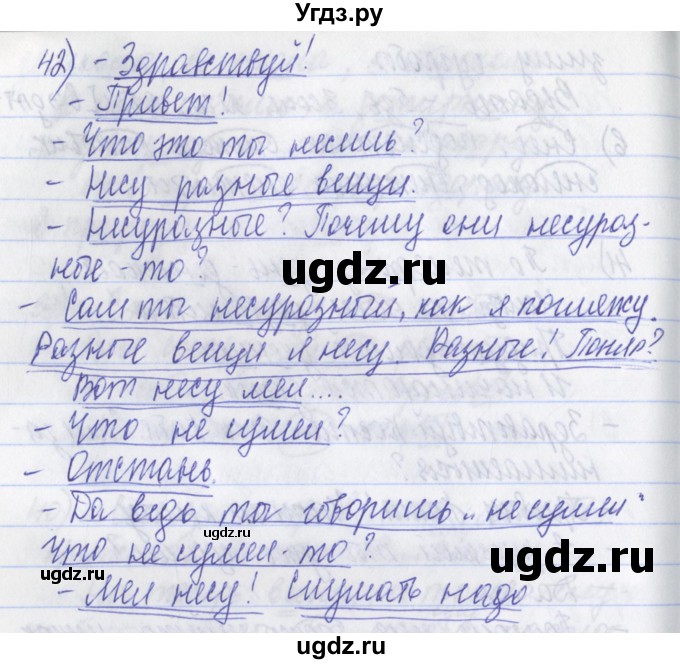 Угдз.ру
42) - Здравствуй!
- Привет!
- Что это ты несешь?
- Несу разные вещи.
- Несуразные? Почему они несураз-
ные-то?
- Сам ты несуразный, как я погляжу.
Разные вещи я несу. Разные! Понял?
Вот несу мел....
- Что не сумел?
- Отстань.
- Да ведь ты говоришь „не сумел"
Что не сумел-то?
- Мел несу! Слушать надо
ugdz.ru
ugdz.ru
ugdz.ru
ugdz.ru
ugdz.ru
ugdz.ru
ugdz.ru